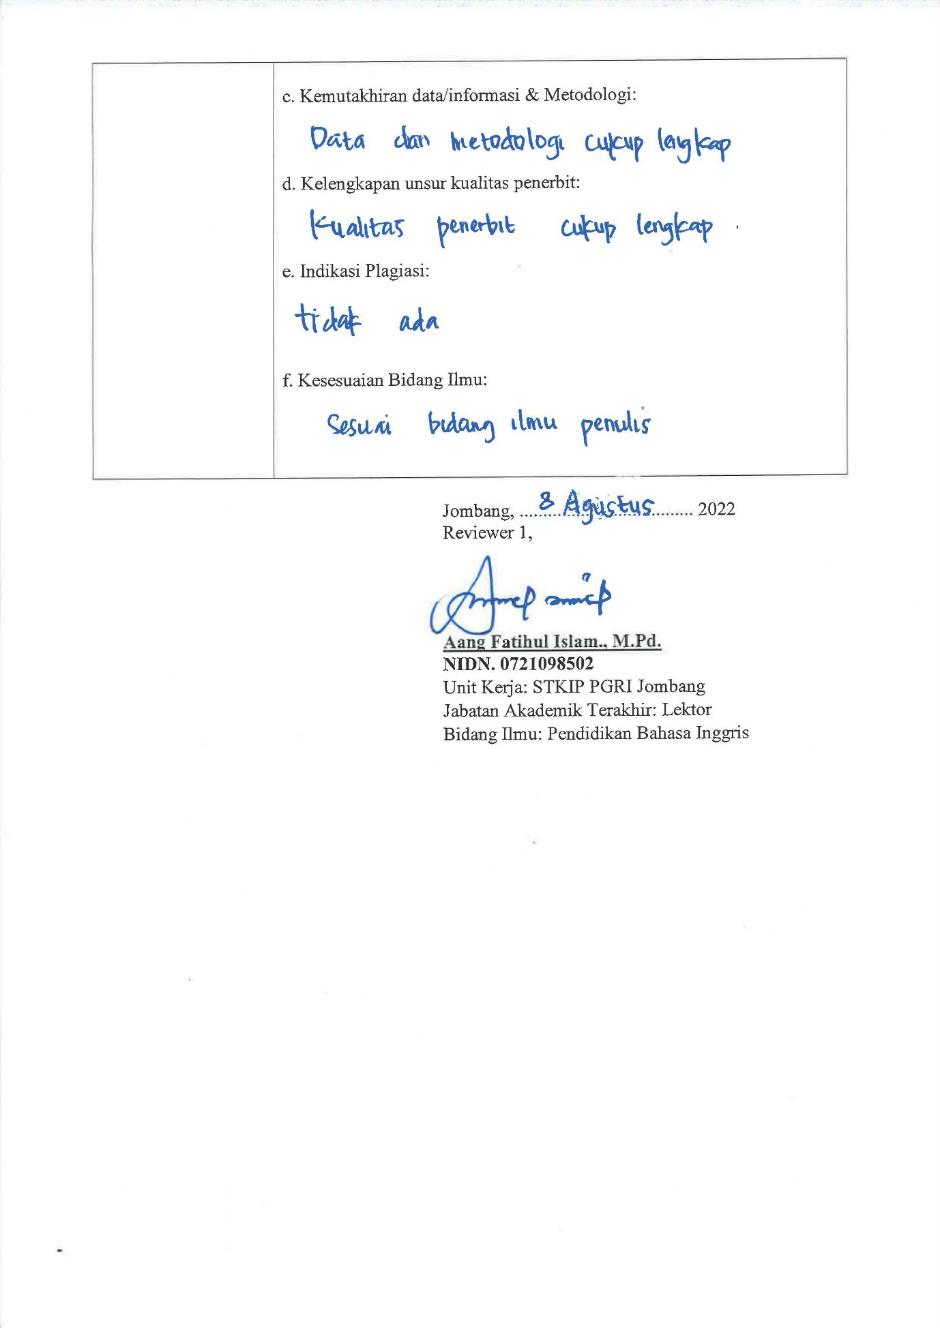 c. Kemutakhiran data/informasi & Metodologi:
Data dan metodologi cukup lengkap
d. Kelengkapan unsur kualitas penerbit:
Kualitas penerbit cukup lengkap.
e. Indikasi Plagiasi:
tidak ada
f. Kesesuaian Bidang Ilmu:
Sesuai bidang ilmu penulis
Jombang, ....8 Agustus.... 2022
Reviewer 1,
Aang Fatihul Islam., M.Pd.
NIDN. 0721098502
Unit Kerja: STKIP PGRI Jombang
Jabatan Akademik Terakhir: Lektor
Bidang Ilmu: Pendidikan Bahasa Inggris